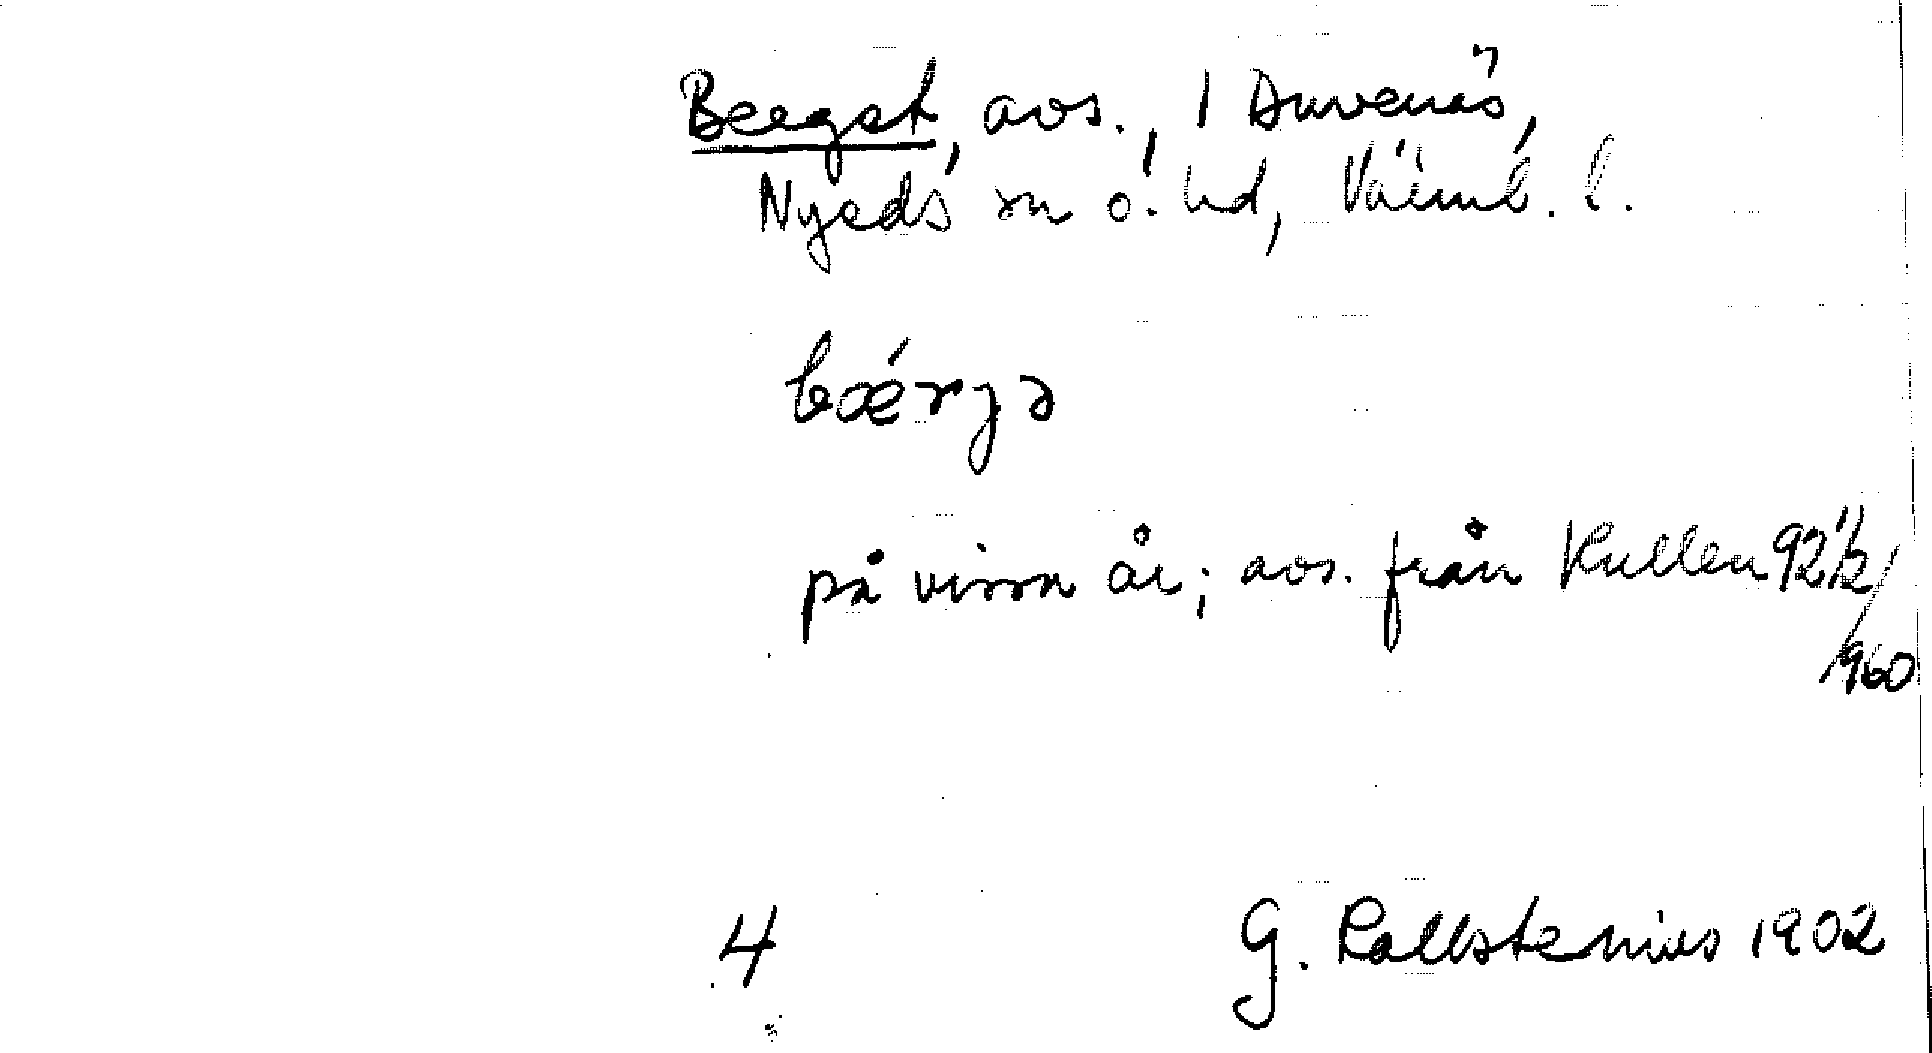 Berget, avs., 1 Duvenäs,
Nyeds sn ö. hd, Värml. l.
bærjə
på vissa år; avs. från Kullen 92 1/2/
1960
4 G. Kallstenius 1902